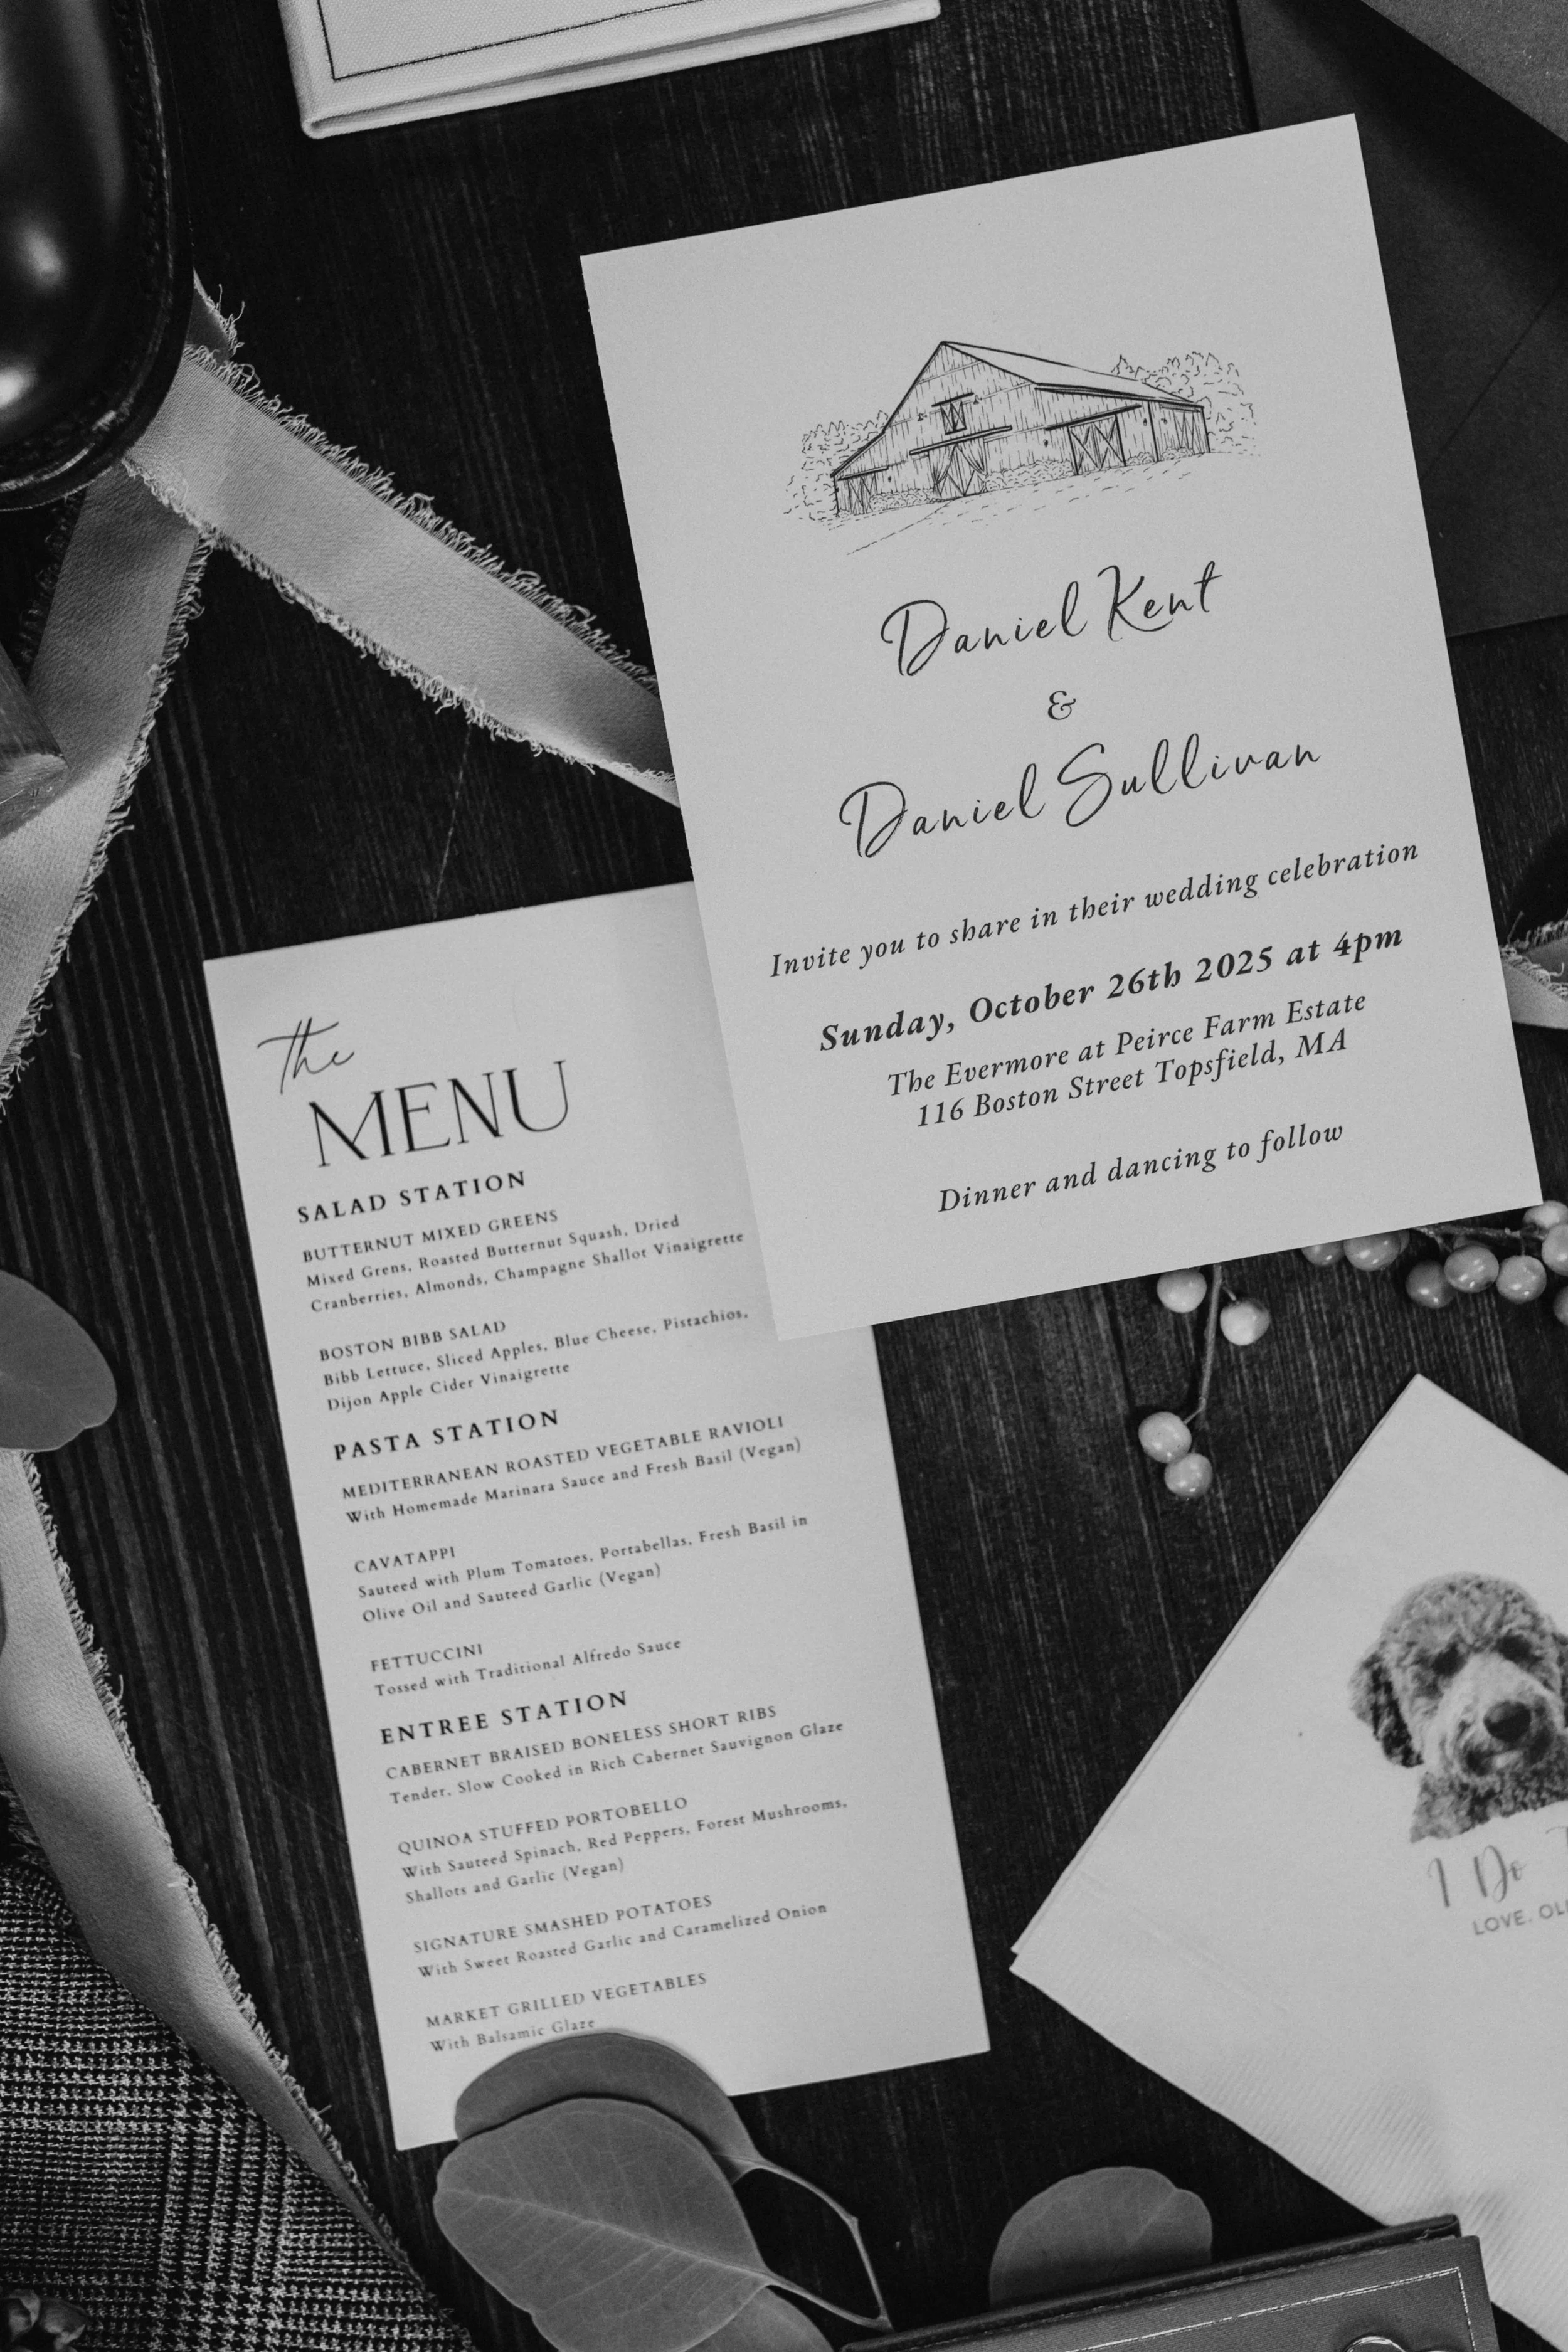 Daniel Kent
&
Daniel Sullivan
Invite you to share in their wedding celebration
Sunday, October 26th 2025 at 4pm
The Evermore at Peirce Farm Estate
116 Boston Street Topsfield, MA
Dinner and dancing to follow
the
MENU
SALAD STATION
BUTTERNUT MIXED GREENS
Mixed Grens, Roasted Butternut Squash, Dried
Cranberries, Almonds, Champagne Shallot Vinaigrette
BOSTON BIBB SALAD
Bibb Lettuce, Sliced Apples, Blue Cheese, Pistachios,
Dijon Apple Cider Vinaigrette
PASTA STATION
MEDITERRANEAN ROASTED VEGETABLE RAVIOLI
With Homemade Marinara Sauce and Fresh Basil (Vegan)
CAVATAPPI
Sauteed with Plum Tomatoes, Portabellas, Fresh Basil in
Olive Oil and Sauteed Garlic (Vegan)
FETTUCCINI
Tossed with Traditional Alfredo Sauce
ENTREE STATION
CABERNET BRAISED BONELESS SHORT RIBS
Tender, Slow Cooked in Rich Cabernet Sauvignon Glaze
QUINOA STUFFED PORTOBELLO
With Sauteed Spinach, Red Peppers, Forest Mushrooms,
Shallots and Garlic (Vegan)
SIGNATURE SMASHED POTATOES
With Sweet Roasted Garlic and Caramelized Onion
MARKET GRILLED VEGETABLES
With Balsamic Glaze
I Do
LOVE,